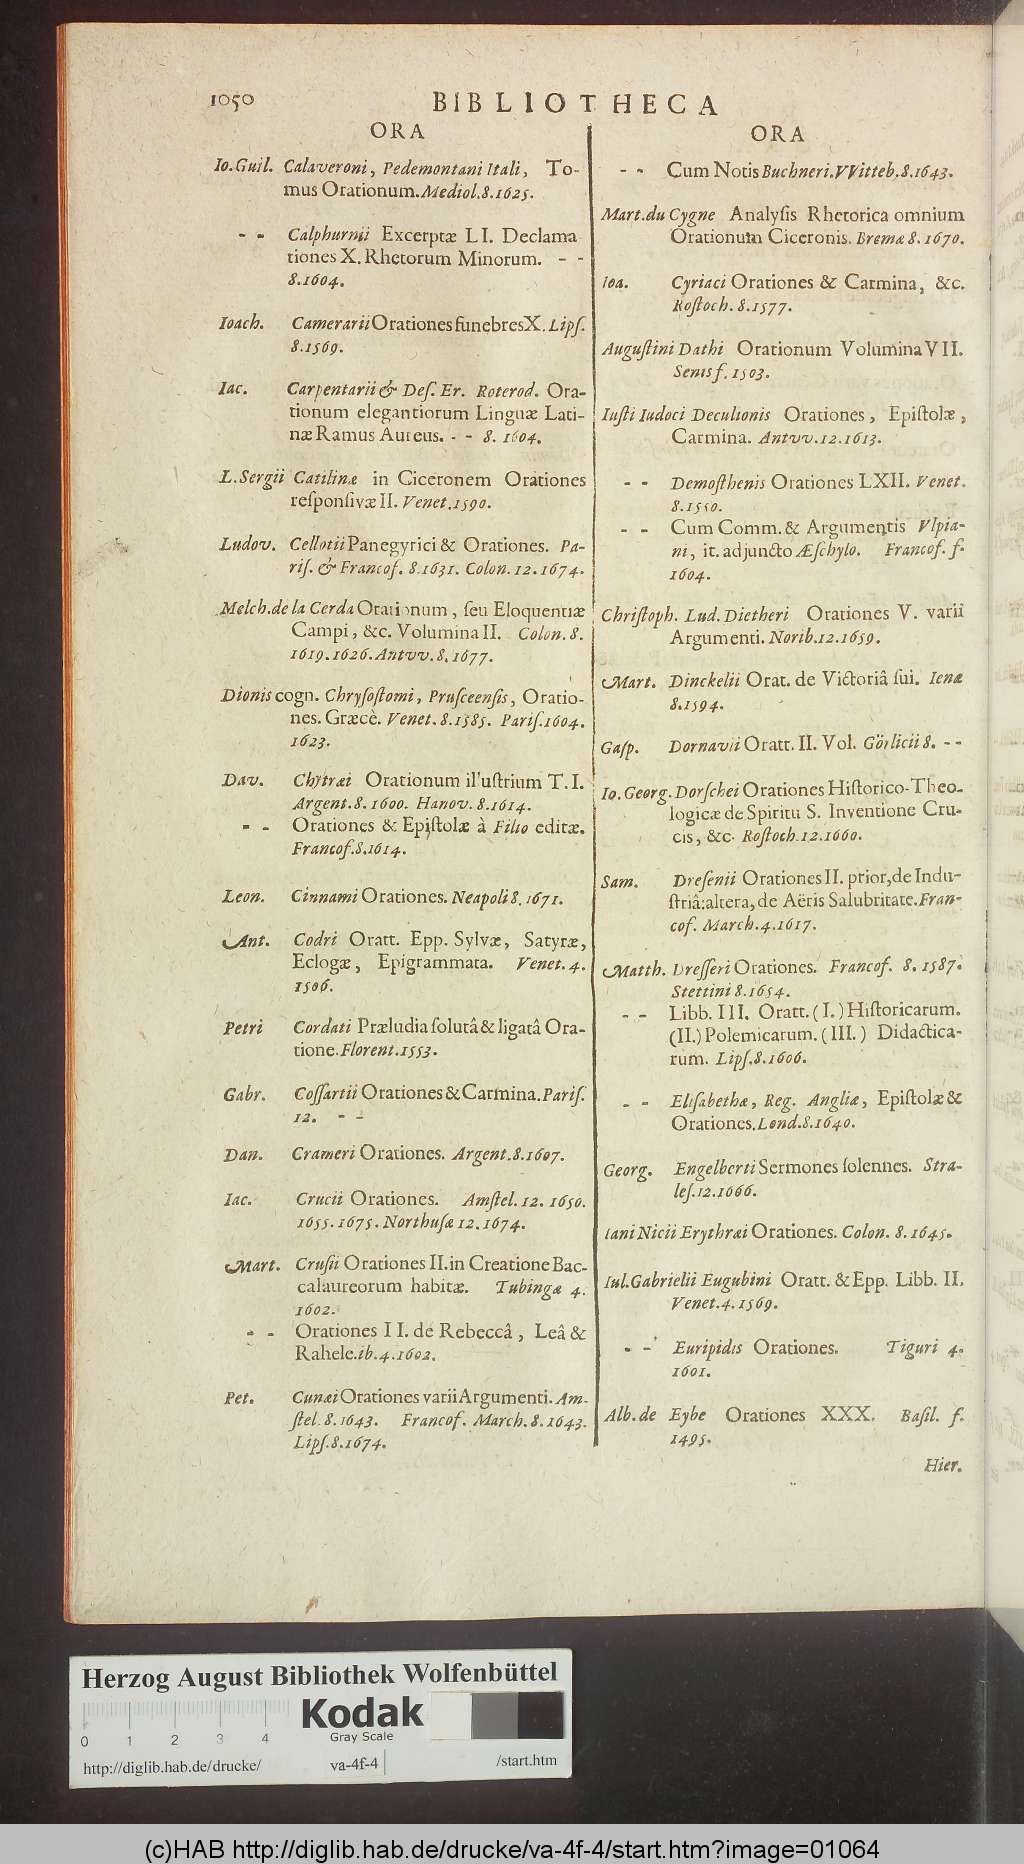 1050 BIBLIOTHECA
ORA
Io. Guil. Calaveroni, Pedemontani Itali, To-
mus Orationum. Mediol. 8. 1625.
- - Calphurnii Excerptæ LI. Declama
tiones X. Rhetorum Minorum. - -
8. 1604.
Ioach. Camerarii Orationes funebres X. Lipſ.
8. 1569.
Iac. Carpentarii & Deſ. Er. Roterod. Ora-
tionum elegantiorum Linguæ Lati-
næ Ramus Aureus. - - 8. 1604.
L. Sergii Catilinæ in Ciceronem Orationes
reſponſivæ II. Venet. 1590.
Ludov. Cellotii Panegyrici & Orationes. Pa-
riſ. & Francof. 8. 1631. Colon. 12. 1674.
Melch. de la Cerda Orationum, ſeu Eloquentiæ
Campi, &c. Volumina II. Colon. 8.
1619. 1626. Antvv. 8. 1677.
Dionis cogn. Chryſoſtomi, Pruſceenſis, Oratio-
nes. Græcè. Venet. 8. 1585. Pariſ. 1604.
1623.
Dav. Chytræi Orationum illuſtrium T. I.
Argent. 8. 1600. Hanov. 8. 1614.
- - Orationes & Epiſtolæ à Filio editæ.
Francof. 8. 1614.
Leon. Cinnami Orationes. Neapoli 8. 1671.
Ant. Codri Oratt. Epp. Sylvæ, Satyræ,
Eclogæ, Epigrammata. Venet. 4.
1506.
Petri Cordati Præludia ſolutâ & ligatâ Ora-
tione. Florent. 1553.
Gabr. Coſſartii Orationes & Carmina. Pariſ.
12. - -
Dan. Crameri Orationes. Argent. 8. 1607.
Iac. Crucii Orationes. Amſtel. 12. 1650.
1655. 1675. Northuſæ 12. 1674.
Mart. Cruſii Orationes II. in Creatione Bac-
calaureorum habitæ. Tubingæ 4.
1602.
- - Orationes II. de Rebeccâ, Leâ &
Rahele. ib. 4. 1602.
Pet. Cunæi Orationes varii Argumenti. Am-
ſtel. 8. 1643. Francof. March. 8. 1643.
Lipſ. 8. 1674.
ORA
- - Cum Notis Buchneri. VVitteb. 8. 1643.
Mart. du Cygne Analyſis Rhetorica omnium
Orationum Ciceronis. Bremæ 8. 1670.
Ioa. Cyriaci Orationes & Carmina, &c.
Roſtoch. 8. 1577.
Auguſtini Dathi Orationum Volumina VII.
Senis f. 1503.
Iuſti Iudoci Decultonis Orationes, Epiſtolæ,
Carmina. Antvv. 12. 1613.
- - Demoſthenis Orationes LXII. Venet.
8. 1550.
- - Cum Comm. & Argumentis Vlpia-
ni, it. adjuncto Æſchylo. Francof. f.
1604.
Chriſtoph. Lud. Dietheri Orationes V. varii
Argumenti. Norib. 12. 1659.
Mart. Dinckelii Orat. de Victoriâ ſui. Ienæ
8. 1594.
Gaſp. Dornavii Oratt. II. Vol. Görlicii 8. - -
Io. Georg. Dorſchei Orationes Hiſtorico-Theo-
logicæ de Spiritu S. Inventione Cru-
cis, &c. Roſtoch. 12. 1660.
Sam. Dreſenii Orationes II. prior, de Indu-
ſtriâ: altera, de Aëris Salubritate. Fran-
cof. March. 4. 1617.
Matth. Dreſſeri Orationes. Francof. 8. 1587.
Stettini 8. 1654.
- - Libb. III. Oratt. (I.) Hiſtoricarum.
(II.) Polemicarum. (III.) Didactica-
rum. Lipſ. 8. 1606.
- - Eliſabethæ, Reg. Angliæ, Epiſtolæ &
Orationes. Lond. 8. 1640.
Georg. Engelberti Sermones ſolennes. Stra-
leſ. 12. 1666.
Iani Nicii Erythræi Orationes. Colon. 8. 1645.
Iul. Gabrielii Eugubini Oratt. & Epp. Libb. II.
Venet. 4. 1569.
- - Euripidis Orationes. Tiguri 4.
1601.
Alb. de Eybe Orationes XXX. Baſil. f.
1495.
Hier.
Herzog August Bibliothek Wolfenbüttel
0 1 2 3 4
Kodak
Gray Scale
http://diglib.hab.de/drucke/ va-4f-4 /start.htm
(c)HAB http://diglib.hab.de/drucke/va-4f-4/start.htm?image=01064